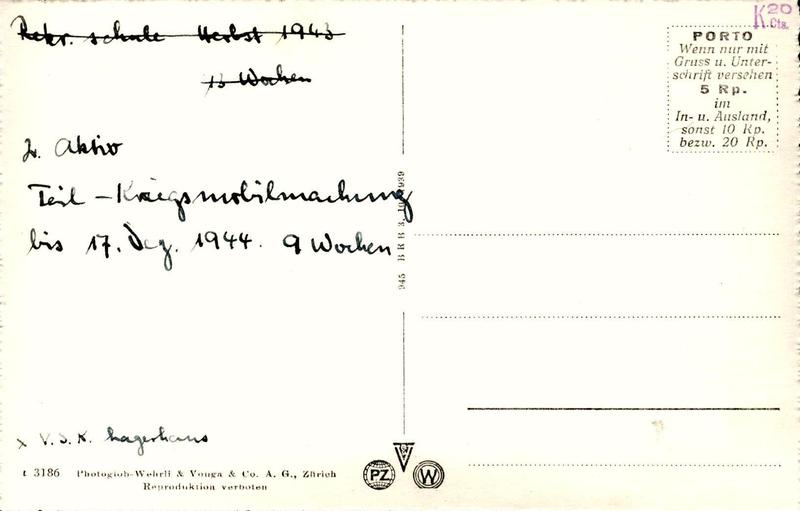 Rekr. schule Herbst 1943
13 Wochen
2. Aktiv
Teil - Kriegsmobilmachung
bis 17. Dez. 1944. 9 Wochen
x V.S.K. Lagerhaus
t 3186 Photoglob-Wehrli & Vouga & Co. A. G., Zürich
Reproduktion verboten
945 BRB 3. 10. 1939
PZ
W
K 20
Cts.
PORTO
Wenn nur mit
Gruss u. Unter-
schrift versehen
5 Rp.
im
In- u. Ausland,
sonst 10 Rp.
bezw. 20 Rp.